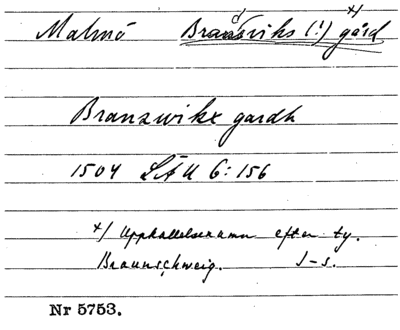 Malmö Braunsviks (!) x) gård
Branzwikx gardh
1504 LÄU 6:156
x) Uppkallelsenamn efter ty.
Braunschweig. J-s.
Nr 5753.